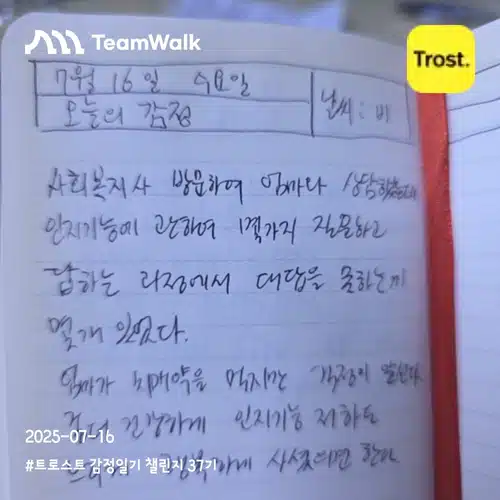 TeamWalk
Trost.
7월 16일 수요일
오늘의 감정
날씨 : 비
사회복지사 방문하여 엄마와 상담하였는데
인지기능에 관하여 몇가지 질문하고
답하는 과정에서 대답을 못하는게
몇개 있었다.
엄마가 치매약을 먹지만 걱정이 앞선다
좀더 건강하게 인지기능 저하도
행복하게 사셨으면 한다
2025-07-16
#트로스트 감정일기 챌린지 37기